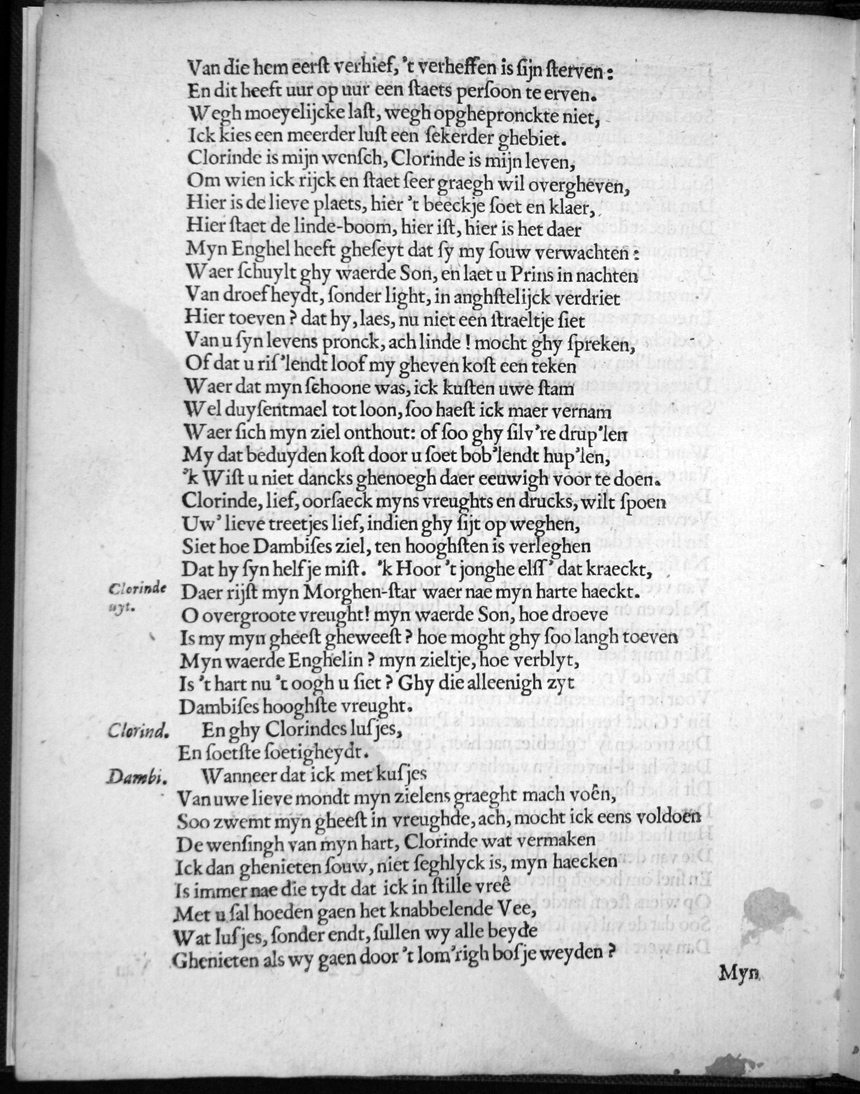 Van die hem eerſt verhief, 't verheffen is ſijn ſterven:
En dit heeft uur op uur een ſtaets perſoon te erven.
Wegh moeyelijcke laſt, wegh opghepronckte niet,
Ick kies een meerder luſt een ſekerder ghebiet.
Clorinde is mijn wenſch, Clorinde is mijn leven,
Om wien ick rijck en ſtaet ſeer graegh wil overgheven,
Hier is de lieve plaets, hier 't beeckje ſoet en klaer,
Hier ſtaet de linde-boom, hier iſt, hier is het daer
Myn Enghel heeft gheſeyt dat ſy my ſouw verwachten:
Waer ſchuylt ghy waerde Son, en laet u Prins in nachten
Van droefheydt, ſonder light, in anghſtelijck verdriet
Hier toeven? dat hy, laes, nu niet een ſtraeltje ſiet
Van u ſyn levens pronck, ach linde! mocht ghy ſpreken,
Of dat u riſ'lendt loof my gheven koſt een teken
Waer dat myn ſchoone was, ick kuſten uwe ſtam
Wel duyſentmael tot loon, ſoo haeſt ick maer vernam
Waer ſich myn ziel onthout: of ſoo ghy ſilv're drup'len
My dat beduyden koſt door u ſoet bob'lendt hup'len,
'k Wiſt u niet dancks ghenoegh daer eeuwigh voor te doen.
Clorinde, lief, oorſaeck myns vreughts en drucks, wilt ſpoen
Uw' lieve treetjes lief, indien ghy ſijt op weghen,
Siet hoe Dambiſes ziel, ten hooghſten is verleghen
Dat hy ſyn helfje miſt. 'k Hoor 't jonghe elſſ' dat kraeckt,
Clorinde uyt. Daer rijſt myn Morghen-ſtar waer nae myn harte haeckt.
O overgroote vreught! myn waerde Son, hoe droeve
Is my myn gheeſt gheweeſt? hoe moght ghy ſoo langh toeven
Myn waerde Enghelin? myn zieltje, hoe verblyt,
Is 't hart nu 't oogh u ſiet? Ghy die alleenigh zyt
Dambiſes hooghſte vreught.
Clorind. En ghy Clorindes luſjes,
En ſoetſte ſoetigheydt.
Dambi. Wanneer dat ick met kuſjes
Van uwe lieve mondt myn zielens graeght mach voên,
Soo zwemt myn gheeſt in vreughde, ach, mocht ick eens voldoen
De wenſingh van myn hart, Clorinde wat vermaken
Ick dan ghenieten ſouw, niet ſeghlyck is, myn haecken
Is immer nae die tydt dat ick in ſtille vreê
Met u ſal hoeden gaen het knabbelende Vee,
Wat luſjes, ſonder endt, ſullen wy alle beyde
Ghenieten als wy gaen door 't lom'righ boſje weyden?
Myn